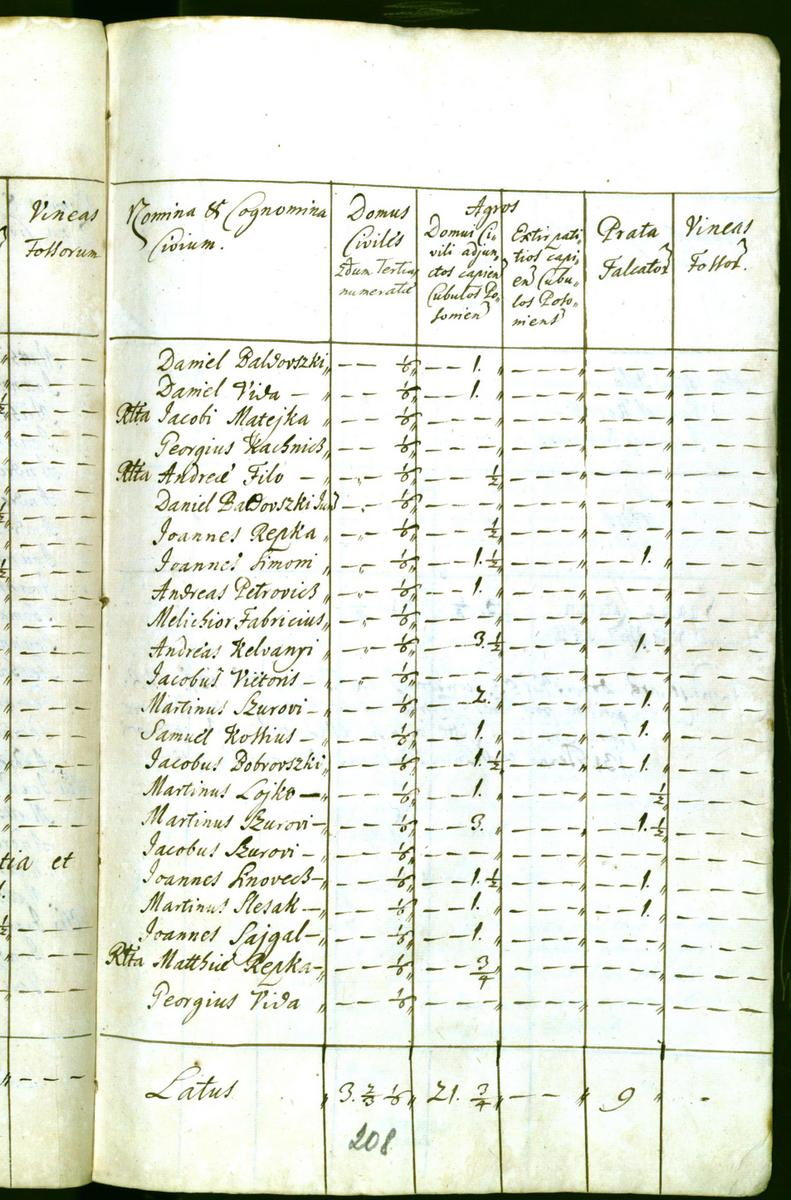 Vineas
Fossorum
tia et
Nomina & Cognomina
Civium.
Domus
Civiles
numeratae
Agros
Domui Ci-
vili adjun-
ctos capien
Cubulos Po-
sonien
Extirpati-
tios capi-
en Cubu-
los Poso-
niens
Prata
Falcator
Vineas
Fossor.
Daniel Baldovszki „ — — 1/6 „ — — 1. „ — — — „ — — — „ — — —
Daniel Vida — „ — — 1/6 „ — — 1. „ — — — „ — — — „ — — —
Rlta Jacobi Matejka „ — — 1/6 „ — — — „ — — — „ — — — „ — — —
Georgius Kachnich „ — — 1/6 „ — — — „ — — — „ — — — „ — — —
Rlta Andreae Filo — „ — — 1/6 „ — — 1/2 „ — — — „ — — — „ — — —
Daniel Baldovszki Jun — — 1/6 „ — — — „ — — — „ — — — „ — — —
Joannes Repka „ — — 1/6 „ — — 1/2 „ — — — „ — — — „ — — —
Joannes Simoni „ — — 1/6 „ — — 1. 1/2 „ — — — „ — — 1. „ — — —
Andreas Petrovich „ — — 1/6 „ — — 1. „ — — — „ — — — „ — — —
Melichior Fabricius „ — — 1/6 „ — — — „ — — — „ — — — „ — — —
Andreas Kelvanyi „ — — 1/6 „ — — 3. 1/2 „ — — — „ — — 1. „ — — —
Jacobus Viëtoris — „ — — 1/6 „ — — — „ — — — „ — — — „ — — —
Martinus Szurovi — „ — — 1/6 „ — — 2. „ — — — „ — — 1. „ — — —
Samuel Kossius — „ — — 1/6 „ — — 1. „ — — — „ — — 1. „ — — —
Jacobus Dobrovszki „ — — 1/6 „ — — 1. 1/2 „ — — — „ — — 1. „ — — —
Martinus Lojko — „ — — 1/6 „ — — 1. „ — — — „ — — 1/2 „ — — —
Martinus Szurovi — „ — — 1/6 „ — — 3. „ — — — „ — — 1. 1/2 „ — — —
Jacobus Szurovi — „ — — 1/6 „ — — — „ — — — „ — — — „ — — —
Joannes Sinovech — „ — — 1/6 „ — — 1. 1/2 „ — — — „ — — 1. „ — — —
Martinus Slesak — „ — — 1/6 „ — — 1. „ — — — „ — — 1. „ — — —
Joannes Sajgal — „ — — 1/6 „ — — 1. „ — — — „ — — — „ — — —
Rlta Matthiae Repka — „ — — 1/6 „ — — 3/4 „ — — — „ — — — „ — — —
Georgius Vida „ — — 1/6 „ — — — „ — — — „ — — — „ — — —
Latus „ 3. 2/3 1/6 „ 21. 3/4 „ — — „ 9 „ -
208